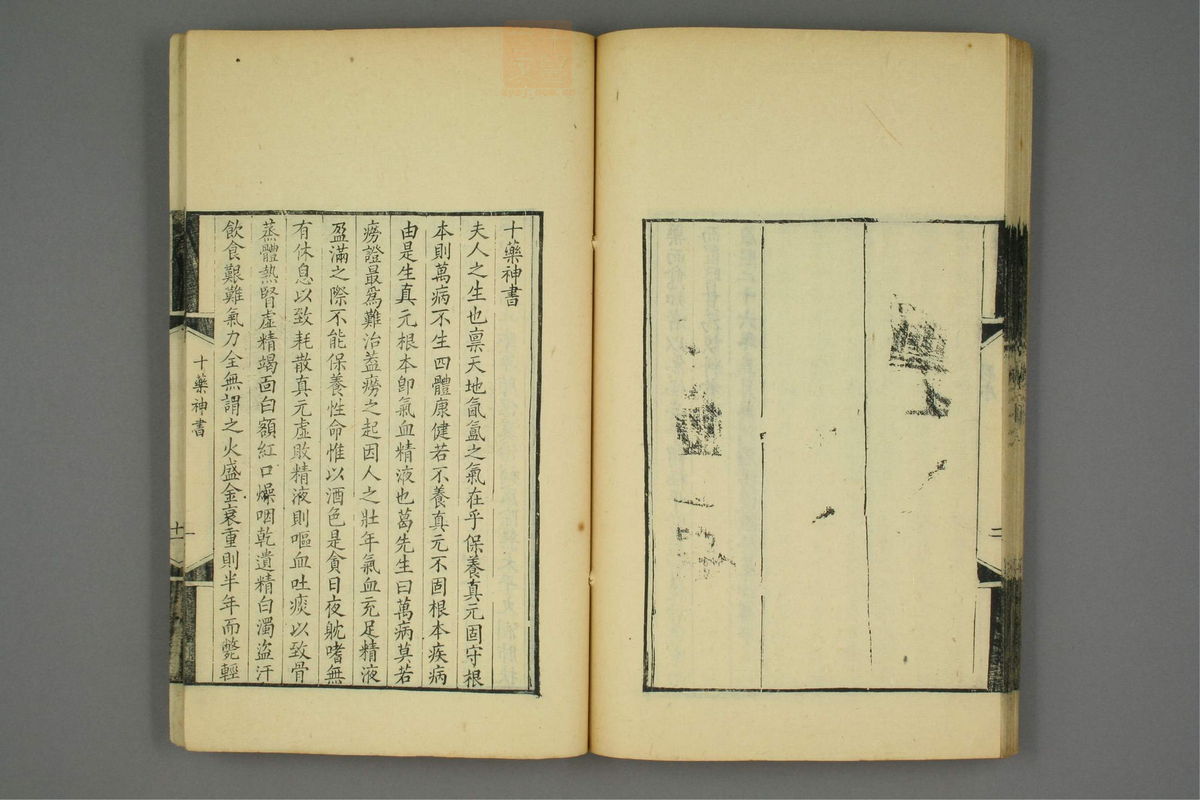 十藥神書
夫人之生也禀天地氤氳之氣在乎保養真元固守根
本則萬病不生四體康健若不養真元不固根本疾病
由是生真元根本卽氣血精液也葛先生曰萬病莫若
癆證最爲難治葢癆之起因人之壯年氣血充足精液
盈滿之際不能保養性命惟以酒色是貪日夜躭嗜無
有休息以致耗散真元虛敗精液則嘔血吐痰以致骨
蒸體熱腎虛精竭面白額紅口燥咽乾遺精白濁盗汗
飲食艱難氣力全無謂之火盛金衰重則半年而斃輕
十藥神書
十一